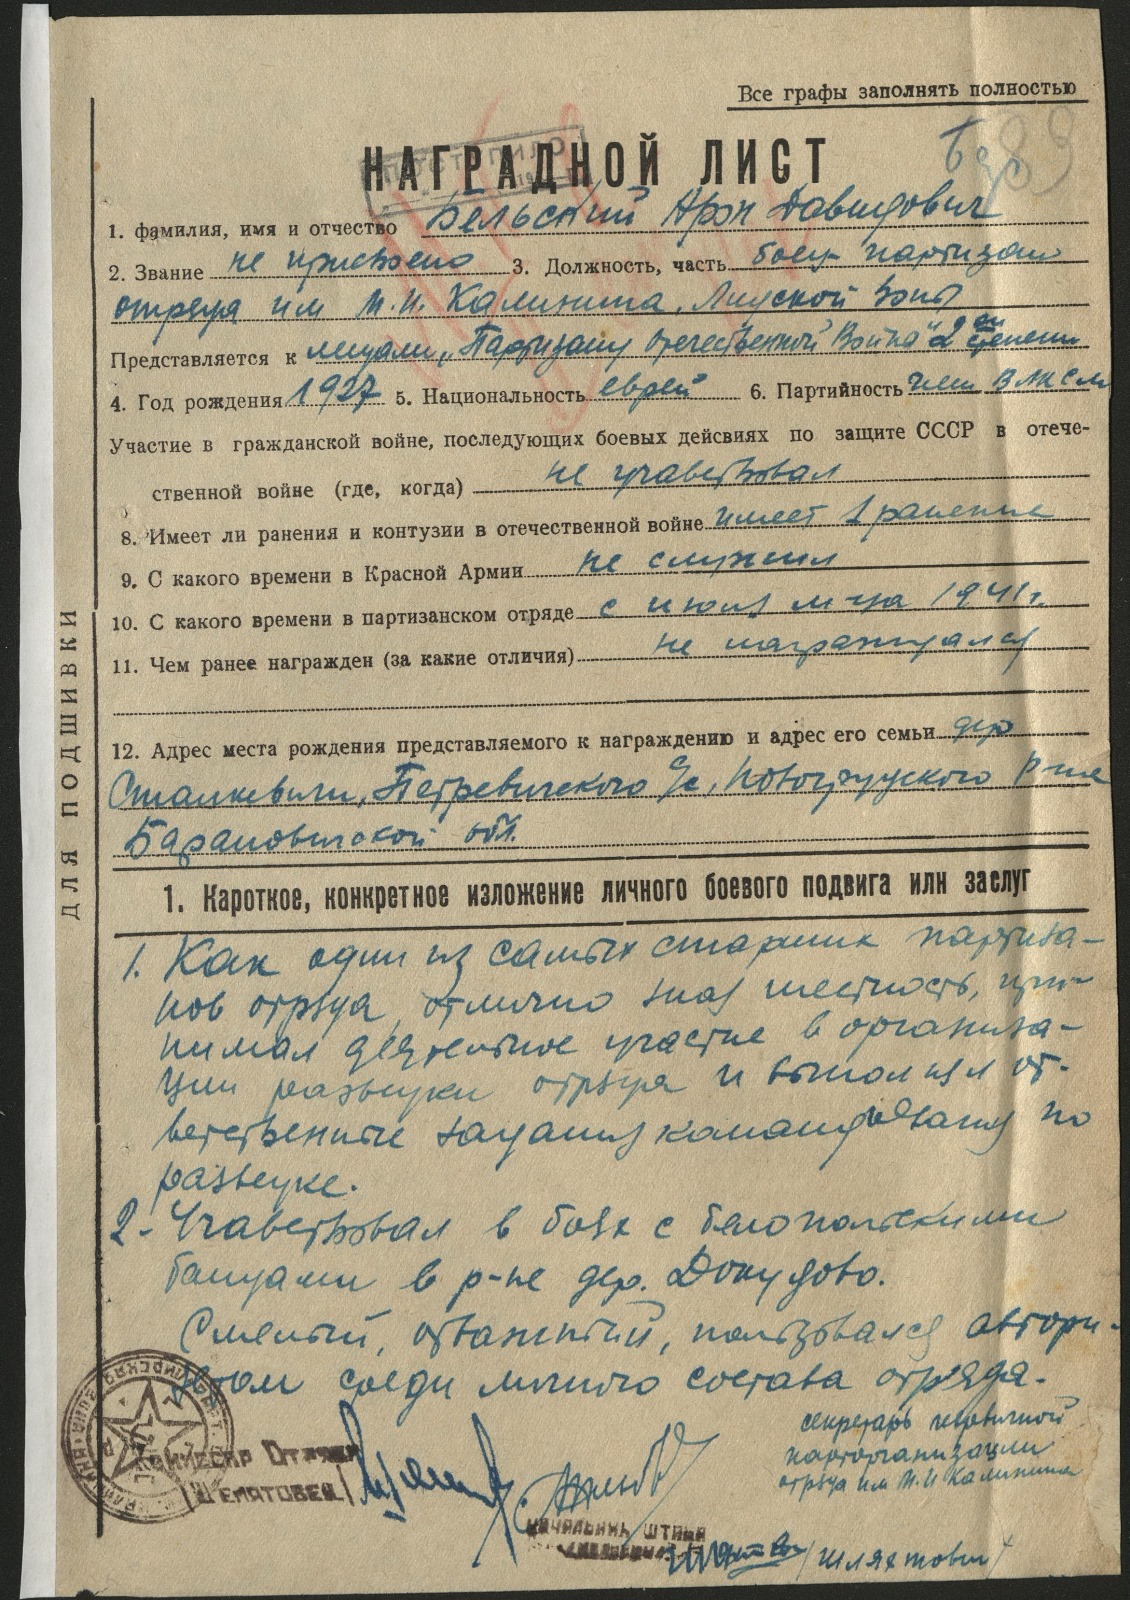 Все графы заполнять полностью
НАГРАДНОЙ ЛИСТ
1. фамилия, имя и отчество Бельский Арон Давидович
2. Звание не присвоено 3. Должность, часть боец партизан
отряда им М.И. Калинина, Лидской зоны
Представляется к медали „Партизану Отечественной Война" 2ой степени
4. Год рождения 1927 5. Национальность еврей 6. Партийность член ВЛКСМ
Участие в гражданской войне, последующих боевых дейсвиях по защите СССР в отече-
ственной войне (где, когда) не учавствовал
8. Имеет ли ранения и контузии в отечественной войне имеет 1 ранение
9. С какого времени в Красной Армии не служил
10. С какого времени в партизанском отряде с июля м-ца 1941г.
11. Чем ранее награжден (за какие отличия) не награждался
12. Адрес места рождения представляемого к награждению и адрес его семьи дер
Станкевичи, Петревичского с/с, Новогрудского р-на
Барановичской обл.
ДЛЯ ПОДШИВКИ
1. Кароткое, конкретное изложение личного боевого подвига илн заслуг
1. Как один из самых старших партиза-
нов отряда, отлично зная местность, при-
нимал деятельное участие в организа-
ции разведки отряда и выполнял от-
ветственные задания командования по
разведке.
2- Учавствовал в боях с белопольскими
бандами в р-не дер. Докудово.
Смелый, отважный, пользовался автори-
тетом среди личного состава отряда.
секретарь первичной
парторганизации
отряда им М.И Калинина
Комиссар Отряда
/Шематовец/
Начальник штаба
/Шляхтович/